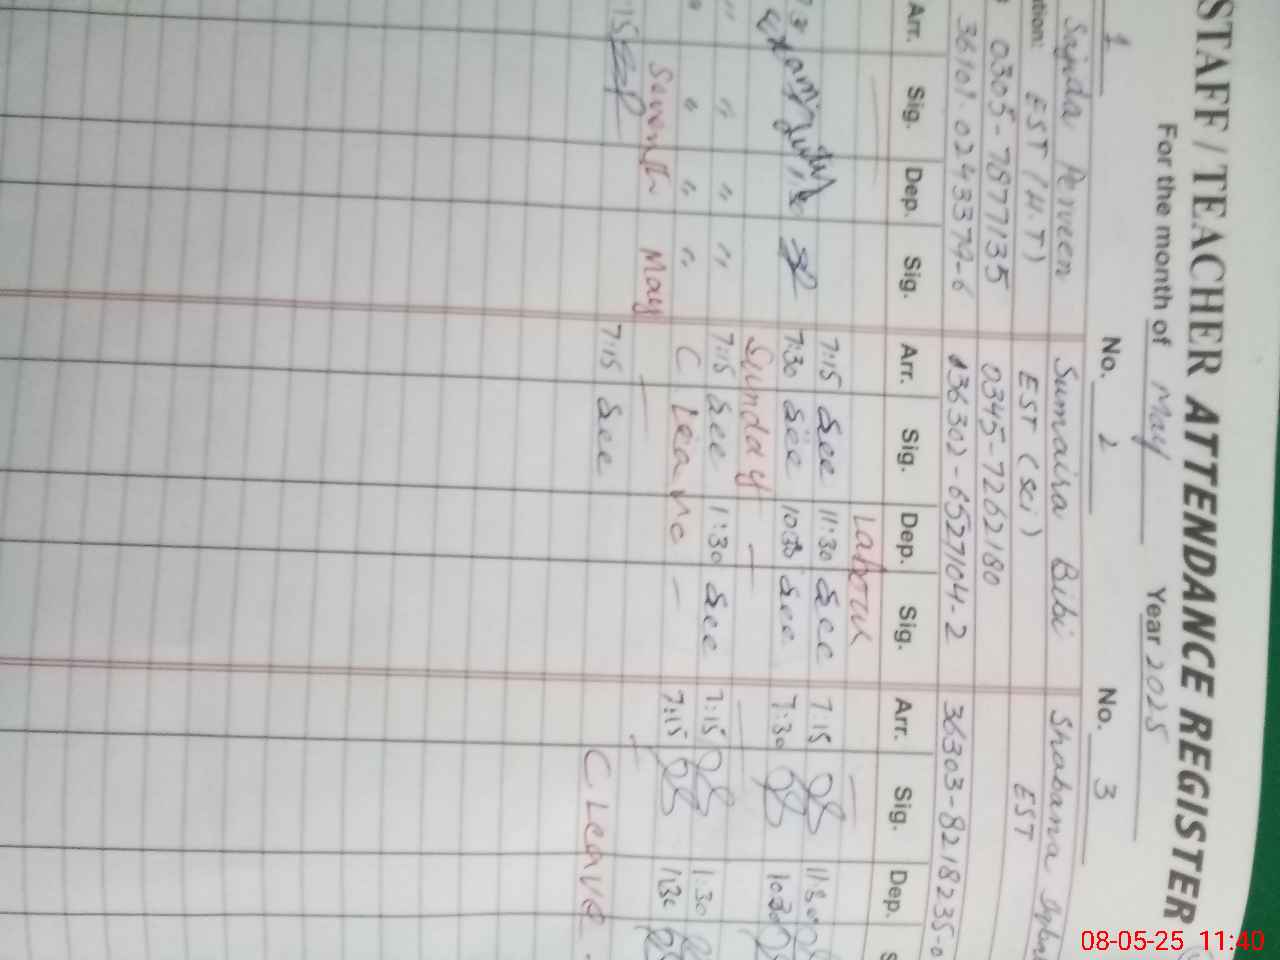 STAFF / TEACHER ATTENDANCE REGISTER
For the month of May Year 2025
1 No. 2 No. 3
Sajda Perveen Sumaira Bibi Shabana
EST (H.T) EST (sci) EST
0305-7877135 0345-7262180
36101-0243379-6 36302-6527104-2 36303-8218235-0
Arr. Sig. Dep. Sig. Arr. Sig. Dep. Sig. Arr. Sig. Dep. S
Labour
7:15 See 11:30 See 7:15 11:30
7:30 See 10:30 See 7:30 10:30
Sunday
" " " " 7:15 See 1:30 See 7:15 1:30
" " " " C. Leave 7:15 1:30
Seventh May
7:15 See C Leave
08-05-25 11:40